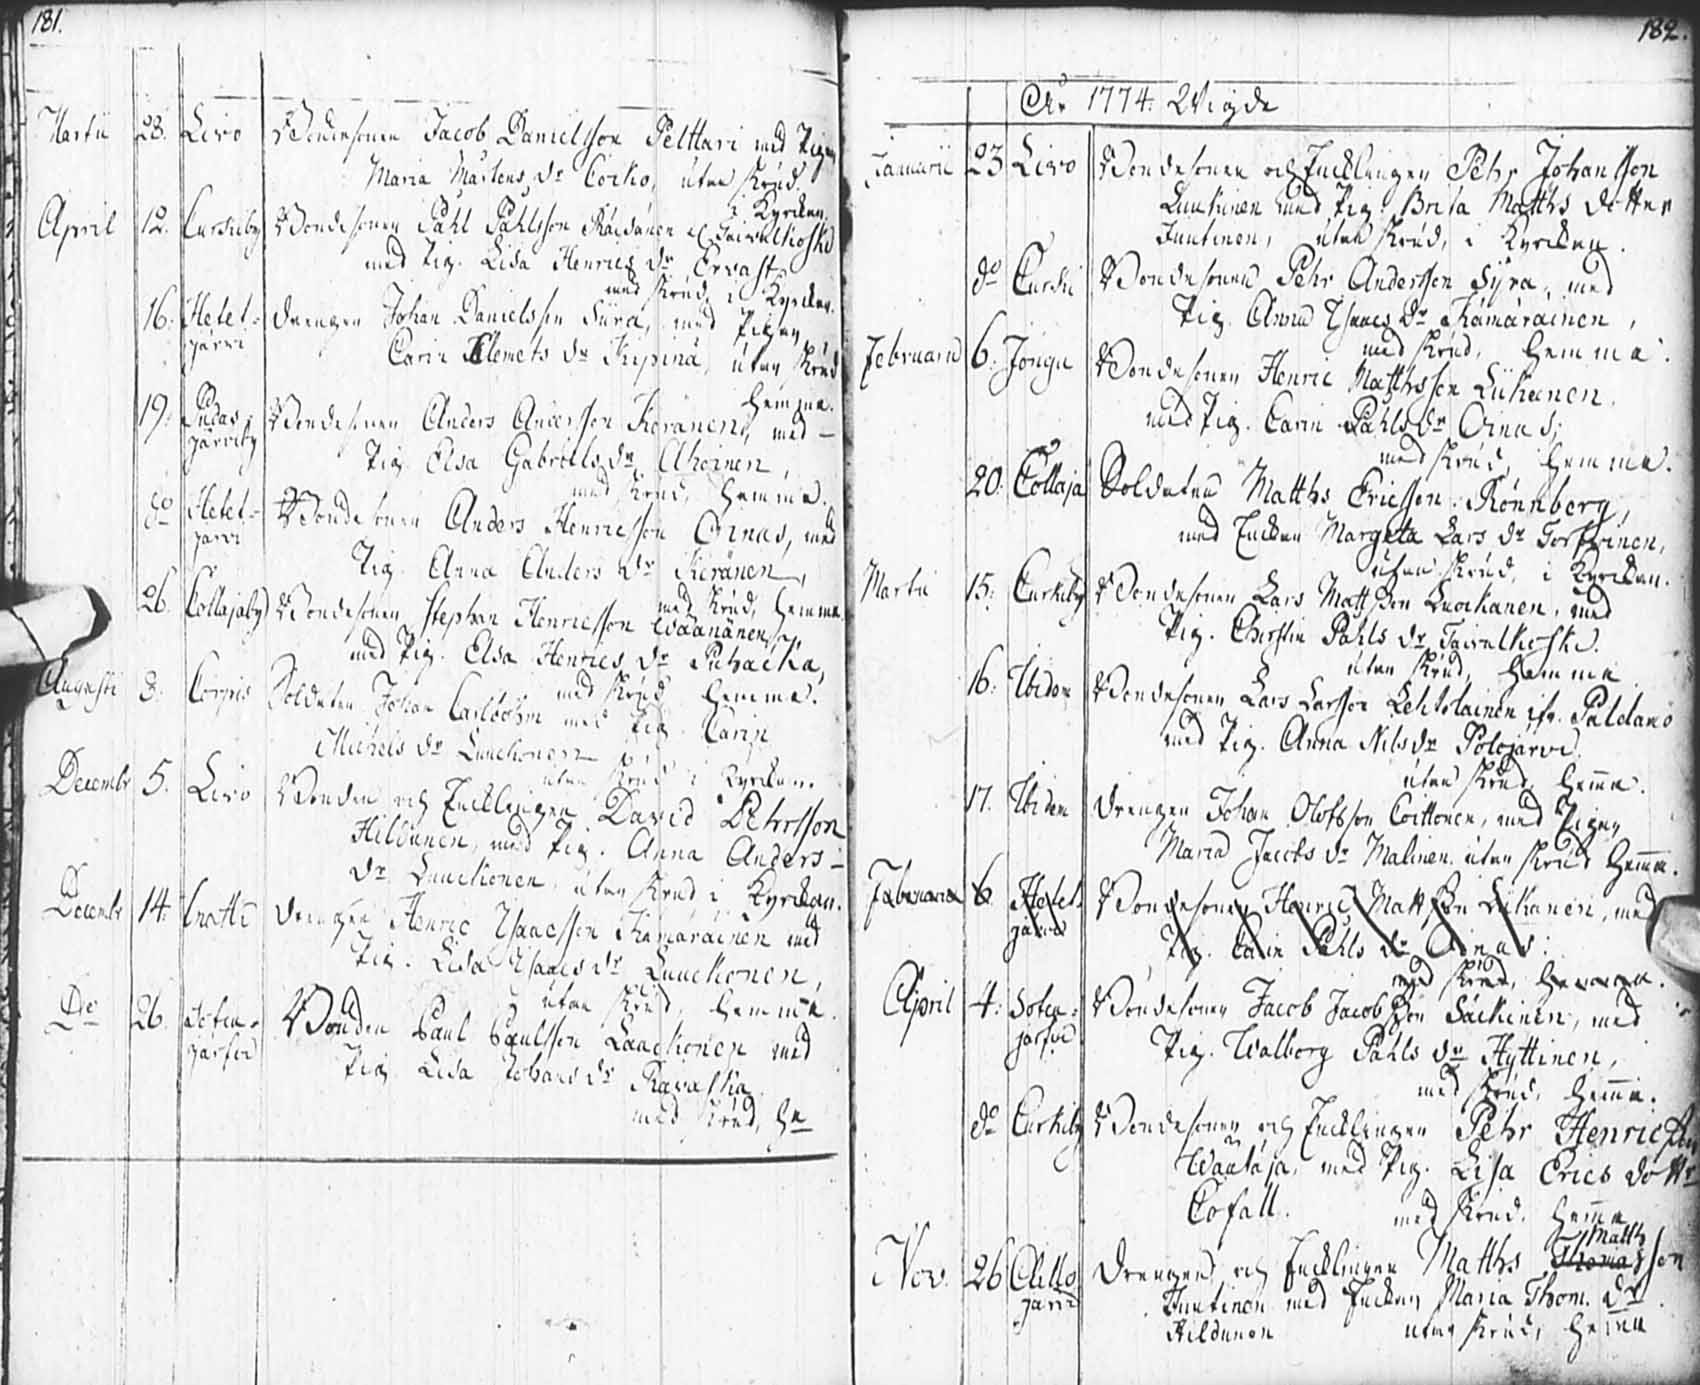 181.
Martii 28. Livo Bondesonen Jacob Danielsson Pelttari med Pigan
Maria Mårtens dr Corko, utan skrud.
i Kyrckan.
April 12. Curkiby Bondesonen Påhl Påhlsson Räisänen el. Taivalkoski
med Pig. Lisa Henrics dr Ervast,
med skrud i Kyrckan.
16. Hetet=
järvi Drengen Johan Danielsson Sūra, med Pigan
Carin Klemets dr Kipinä, utan skrud
hemma.
19. Pudas=
järviby Bondesonen Anders Andersson Keränen, med
Pig. Elsa Gabriels dr Ahoinen,
med skrud, hemma.
do Hetet=
järvi Bondesonen Anders Henricsson Oinas, med
Pig. Anna Anders dr Keränen,
med skrud, hemma.
26. Collajaby Bondesonen Stephan Henricsson Wäänänen,
med Pig. Elsa Henrics dr Puhacka,
med skrud hemma.
Augusti 3. Corpis Soldaten Johan Carlbohm med Pig. Carin
Michels dr Luuckonen
utan skrud i Kyrckan.
Decembr 5. Livo Bonden och Encklingen David Pehrsson
Hildunen, med Pig. Anna Anders=
dr Luuckonen, utan skrud i Kyrckan.
Decembr 14. Inatti Drengen Henric Ysaacsson Kämäräinen med
Pig. Lisa Ysaacs dr Luuckonen,
utan skrud, hemma.
De 26. Soten=
järfvi Bonden Paul Paulsson Laackonen med
Pig. Lisa Johans dr Ravaska
med skrud, he
182.
Ao 1774. Wigde
Januarii 23 Livo Bondesonen och Encklingen Pehr Johansson
Luukinen med Pig. Brita Matths dotter
Juntinen, utan skrud, i Kyrckan.
do Cursu Bondesonen Pehr Andersson Syrä, med
Pig. Anna Ysaacs dr Kämäräinen,
med skrud, hemma.
Februarii 6. Jongu Bondesonen Henric Matthsson Lūkanen,
med Pig. Carin Påhls dr Oinas,
med skrud, hemma.
20. Collaja Soldaten Matths Ericsson Rönnberg,
med Enckan Margeta Lars dr Torfvinen,
utan skrud, i Kyrckan.
Martii 15. Curkiby Bondesonen Lars Mattsson Luockanen, med
Pig. Christin Påhls dr Taivalkoski.
utan skrud, hemma
16. Ibidem Bondesonen Lars Larsson Lehtolainen ifr. Paldamo
med Pig. Anna Nils dr Polojärvi.
utan skrud, hemma.
17. Ibidem Drengen Johan Olofsson Coittonen, med Pigan
Maria Jacobs dr Malinen. utan skrud hemma.
Februarii 6 Hetet=
järvi Bondesonen Henric Mattsson Lūkanen, med
Pig. Carin Påhls dr Oinas.
med skrud, hemma.
April 4. Soten=
järfvi Bondesonen Jacob Jacobsson Säckinen, med
Pig. Walborg Påhls dr Hyttinen,
med skrud, hemma.
do Curkiby Bondesonen och Encklingen Pehr Henricsson
Waataja, med Pig. Lisa Erics dottr
Cofall. med skrud. hemma
Matth
Nov. 26 Aitto
järvi Drengen och Encklingen Matths Thomasson
Juntinen med Enckan Maria Thom. dr
Hildunen utan skrud, hemma